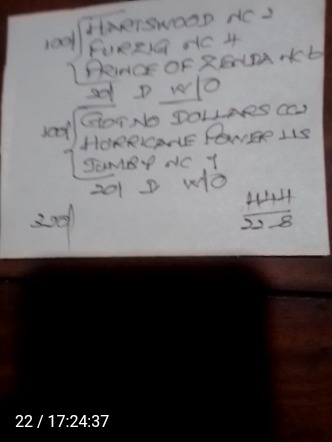 100/ HARTSWOOD NC 2
FURZIG NC 4
PRINCE OF ZENDA NC 6
20/ D W/O
100/ GOT NO DOLLARS CC 2
HURRICANE POWER
JUMBY NC 7
20/ D W/O
444
320/
22-8
22 / 17:24:37